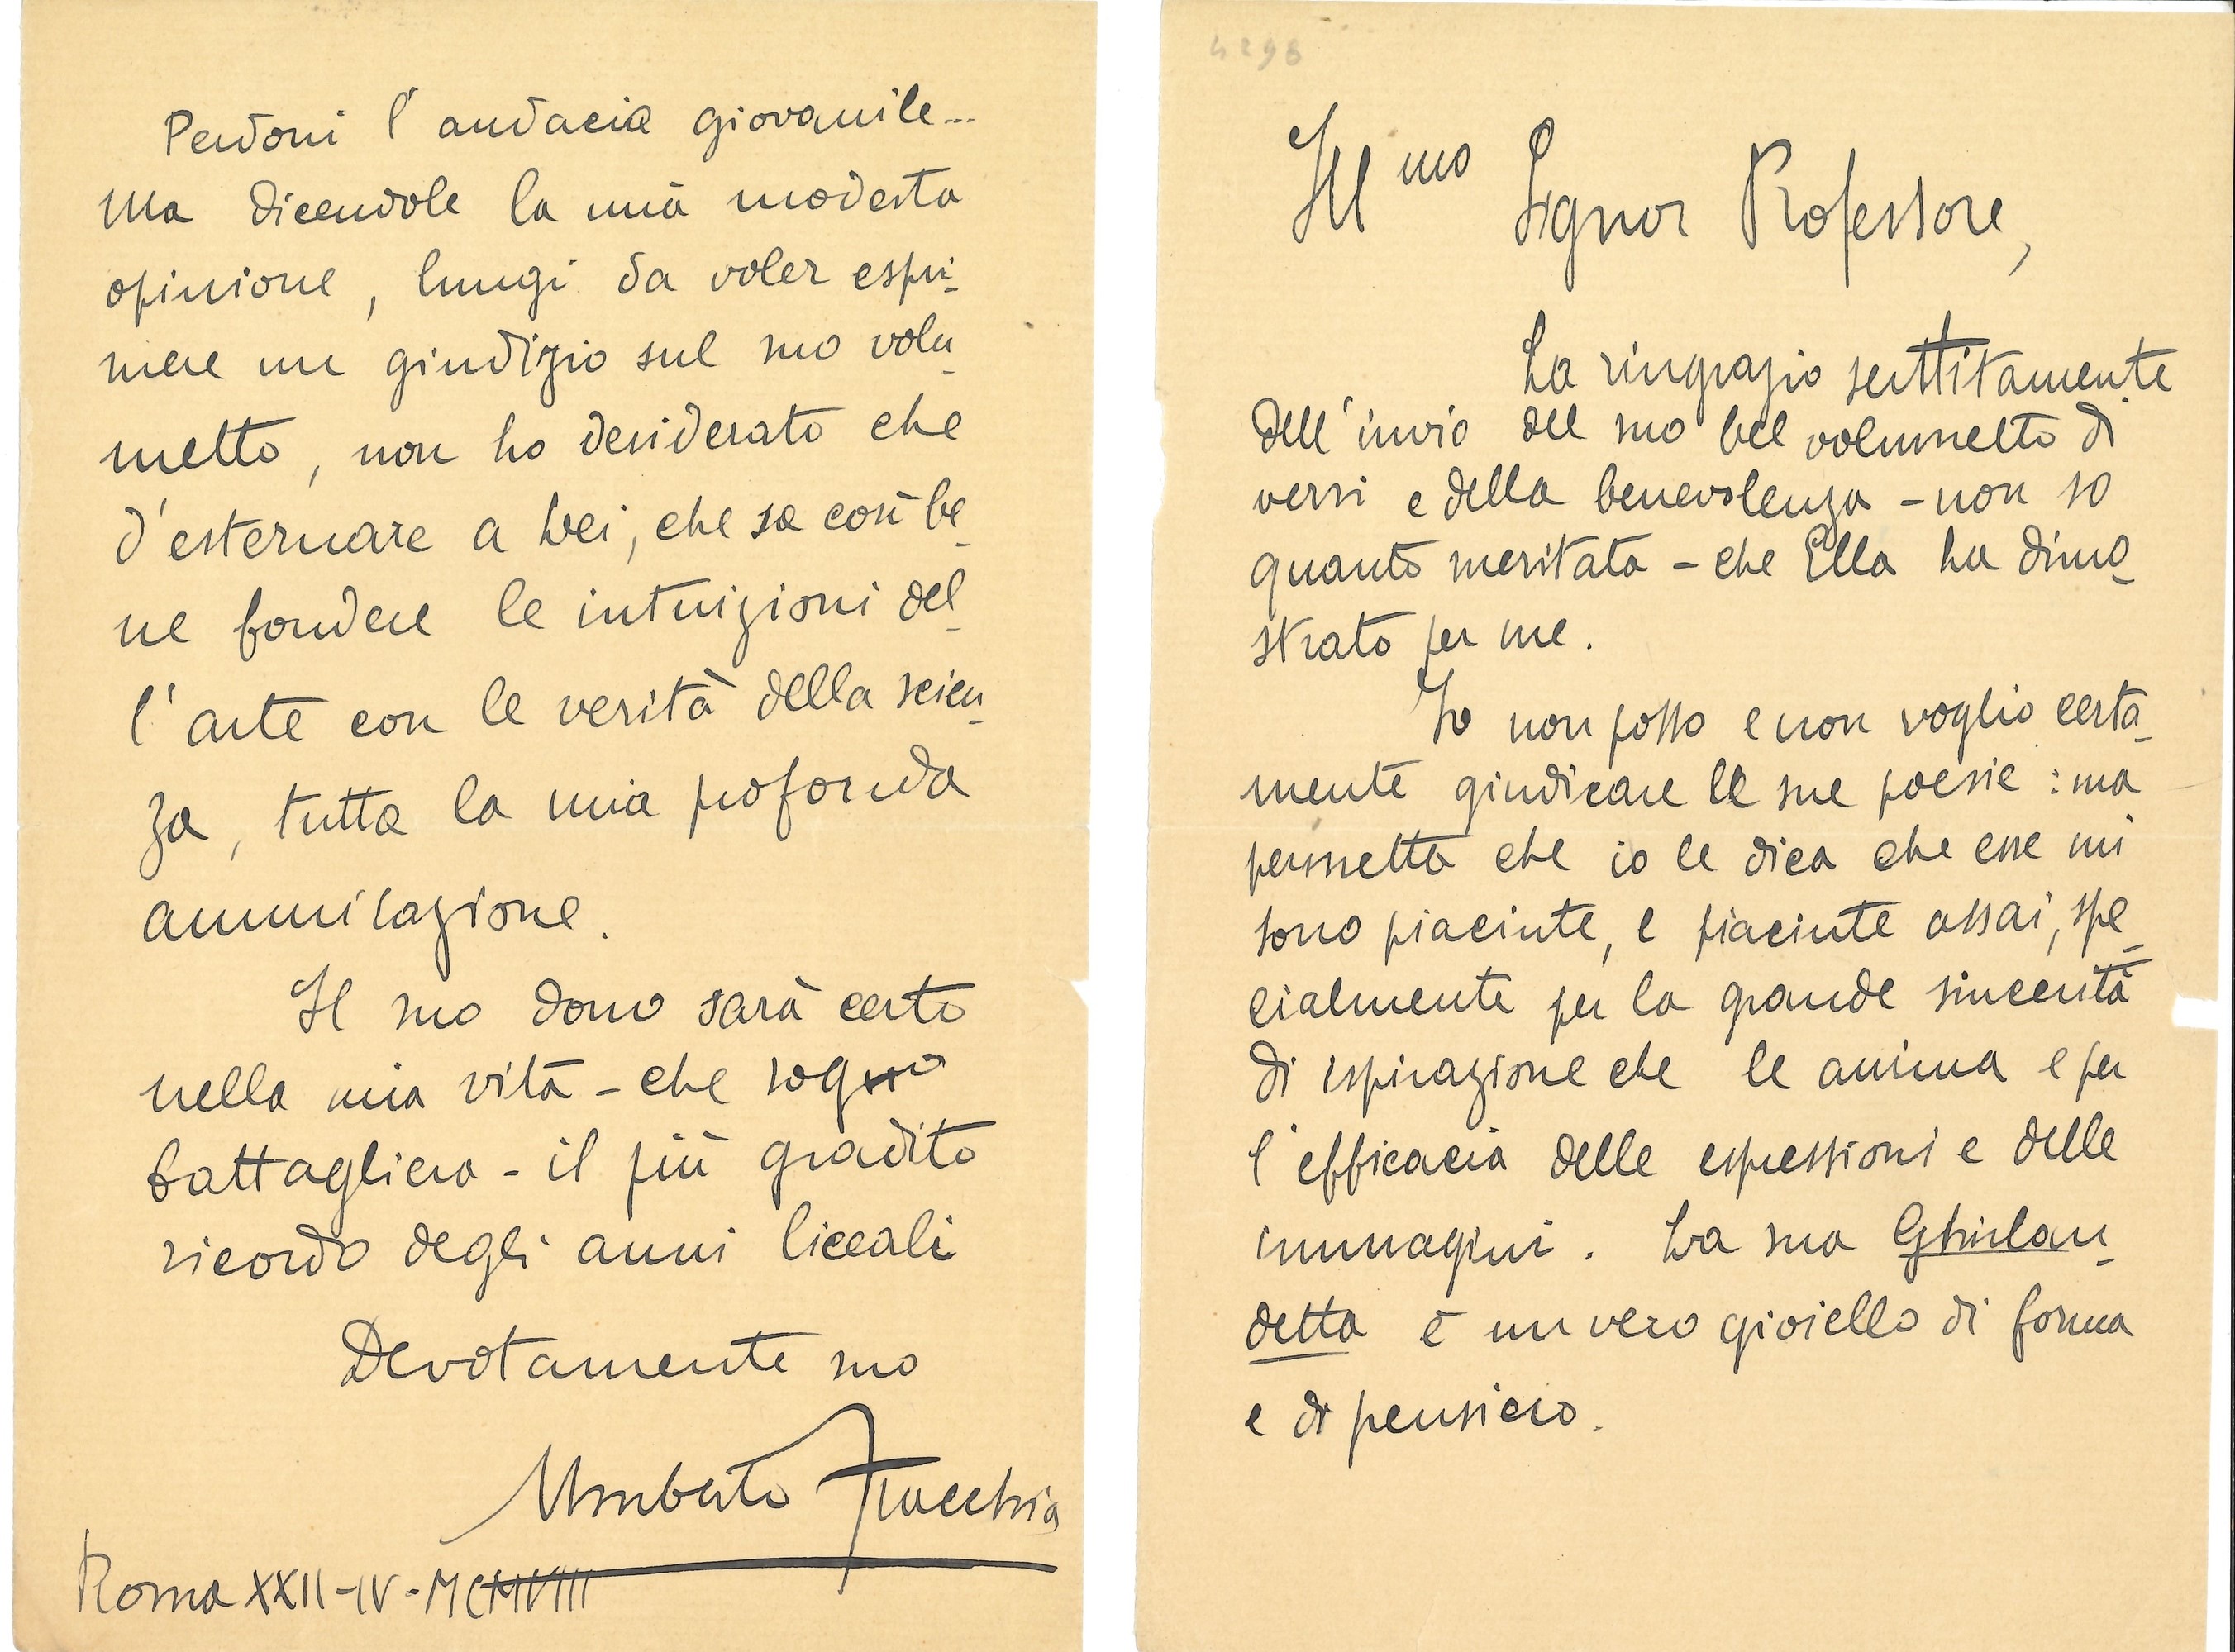 4298
Ill mo Signor Professore,
La ringrazio senttitamente
dell'invio del suo bel volumetto di
versi e della benevolenza - non so
quanto meritata - che Ella ha dimo-
strato per me.
Io non posso e non voglio certa-
mente giudicare le sue poesie : ma
permetta che io le dica che esse mi
sono piaciute, e piaciute assai, spe-
cialmente per la grande sincerità
di ispirazione che le anima e per
l'efficacia delle espressioni e delle
immagini. La sua Ghirlan-
detta è un vero gioiello di forma
e di pensiero.
Perdoni l'audacia giovanile...
ma dicendole la mia modesta
opinione, lungi da voler espri-
mere un giudizio sul suo volu-
metto, non ho desiderato che
d'esternare a Lei, che sa così be-
ne fondere le intuizioni del-
l'arte con le verità della scien-
za, tutta la mia profonda
ammirazione.
Il suo dono sarà certo
nella mia vita - che sogno
battagliera - il più gradito
ricordo degli anni liceali
Devotamente suo
Umberto Fracchia
Roma XXII-IV-MCMVIII